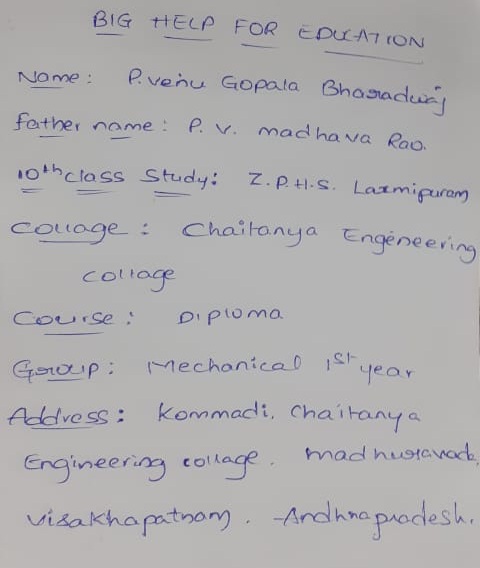 BIG HELP FOR EDUCATION
Name: P. venu Gopala Bharadwaj
father name: P. V. madhava Rao.
10th class Study: Z.P.H.S. Laxmipuram
Collage: Chaitanya Engeneering
collage
Course: Diploma
Group: Mechanical 1st year
Address: Kommadi, Chaitanya
Engineering collage. madhuravada,
Visakhapatnam. -Andhrapradesh.